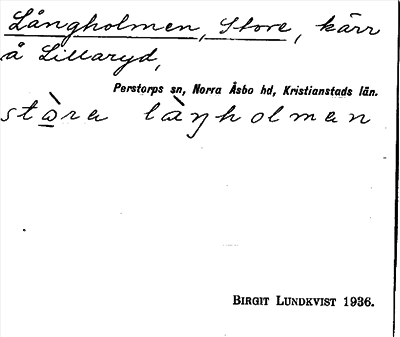 Långholmen, Store, kärr
å Lillaryd,
Perstorps sn, Norra Åsbo hd, Kristianstads län.
stò̲ra làŋholmen
BIRGIT LUNDKVIST 1936.